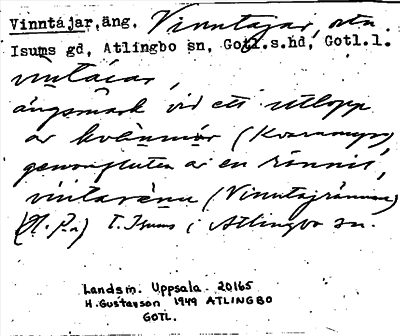 Vinntájar, äng. Vinntajar, osv.
Isums gd, Atlingbo sn, Gotl.s.hd, Gotl.l.
vintácar,
ängsmark vid ett utlopp
av kvänmör (Kvarnmyr)
genomfluten av en rännil,
vintarännu (Vinntajrännan)
(N. Pa) T. Isums i Atlingbo sn.
Landsm. Uppsala 20165
H. Gustavson 1949 ATLINGBO
GOTL.